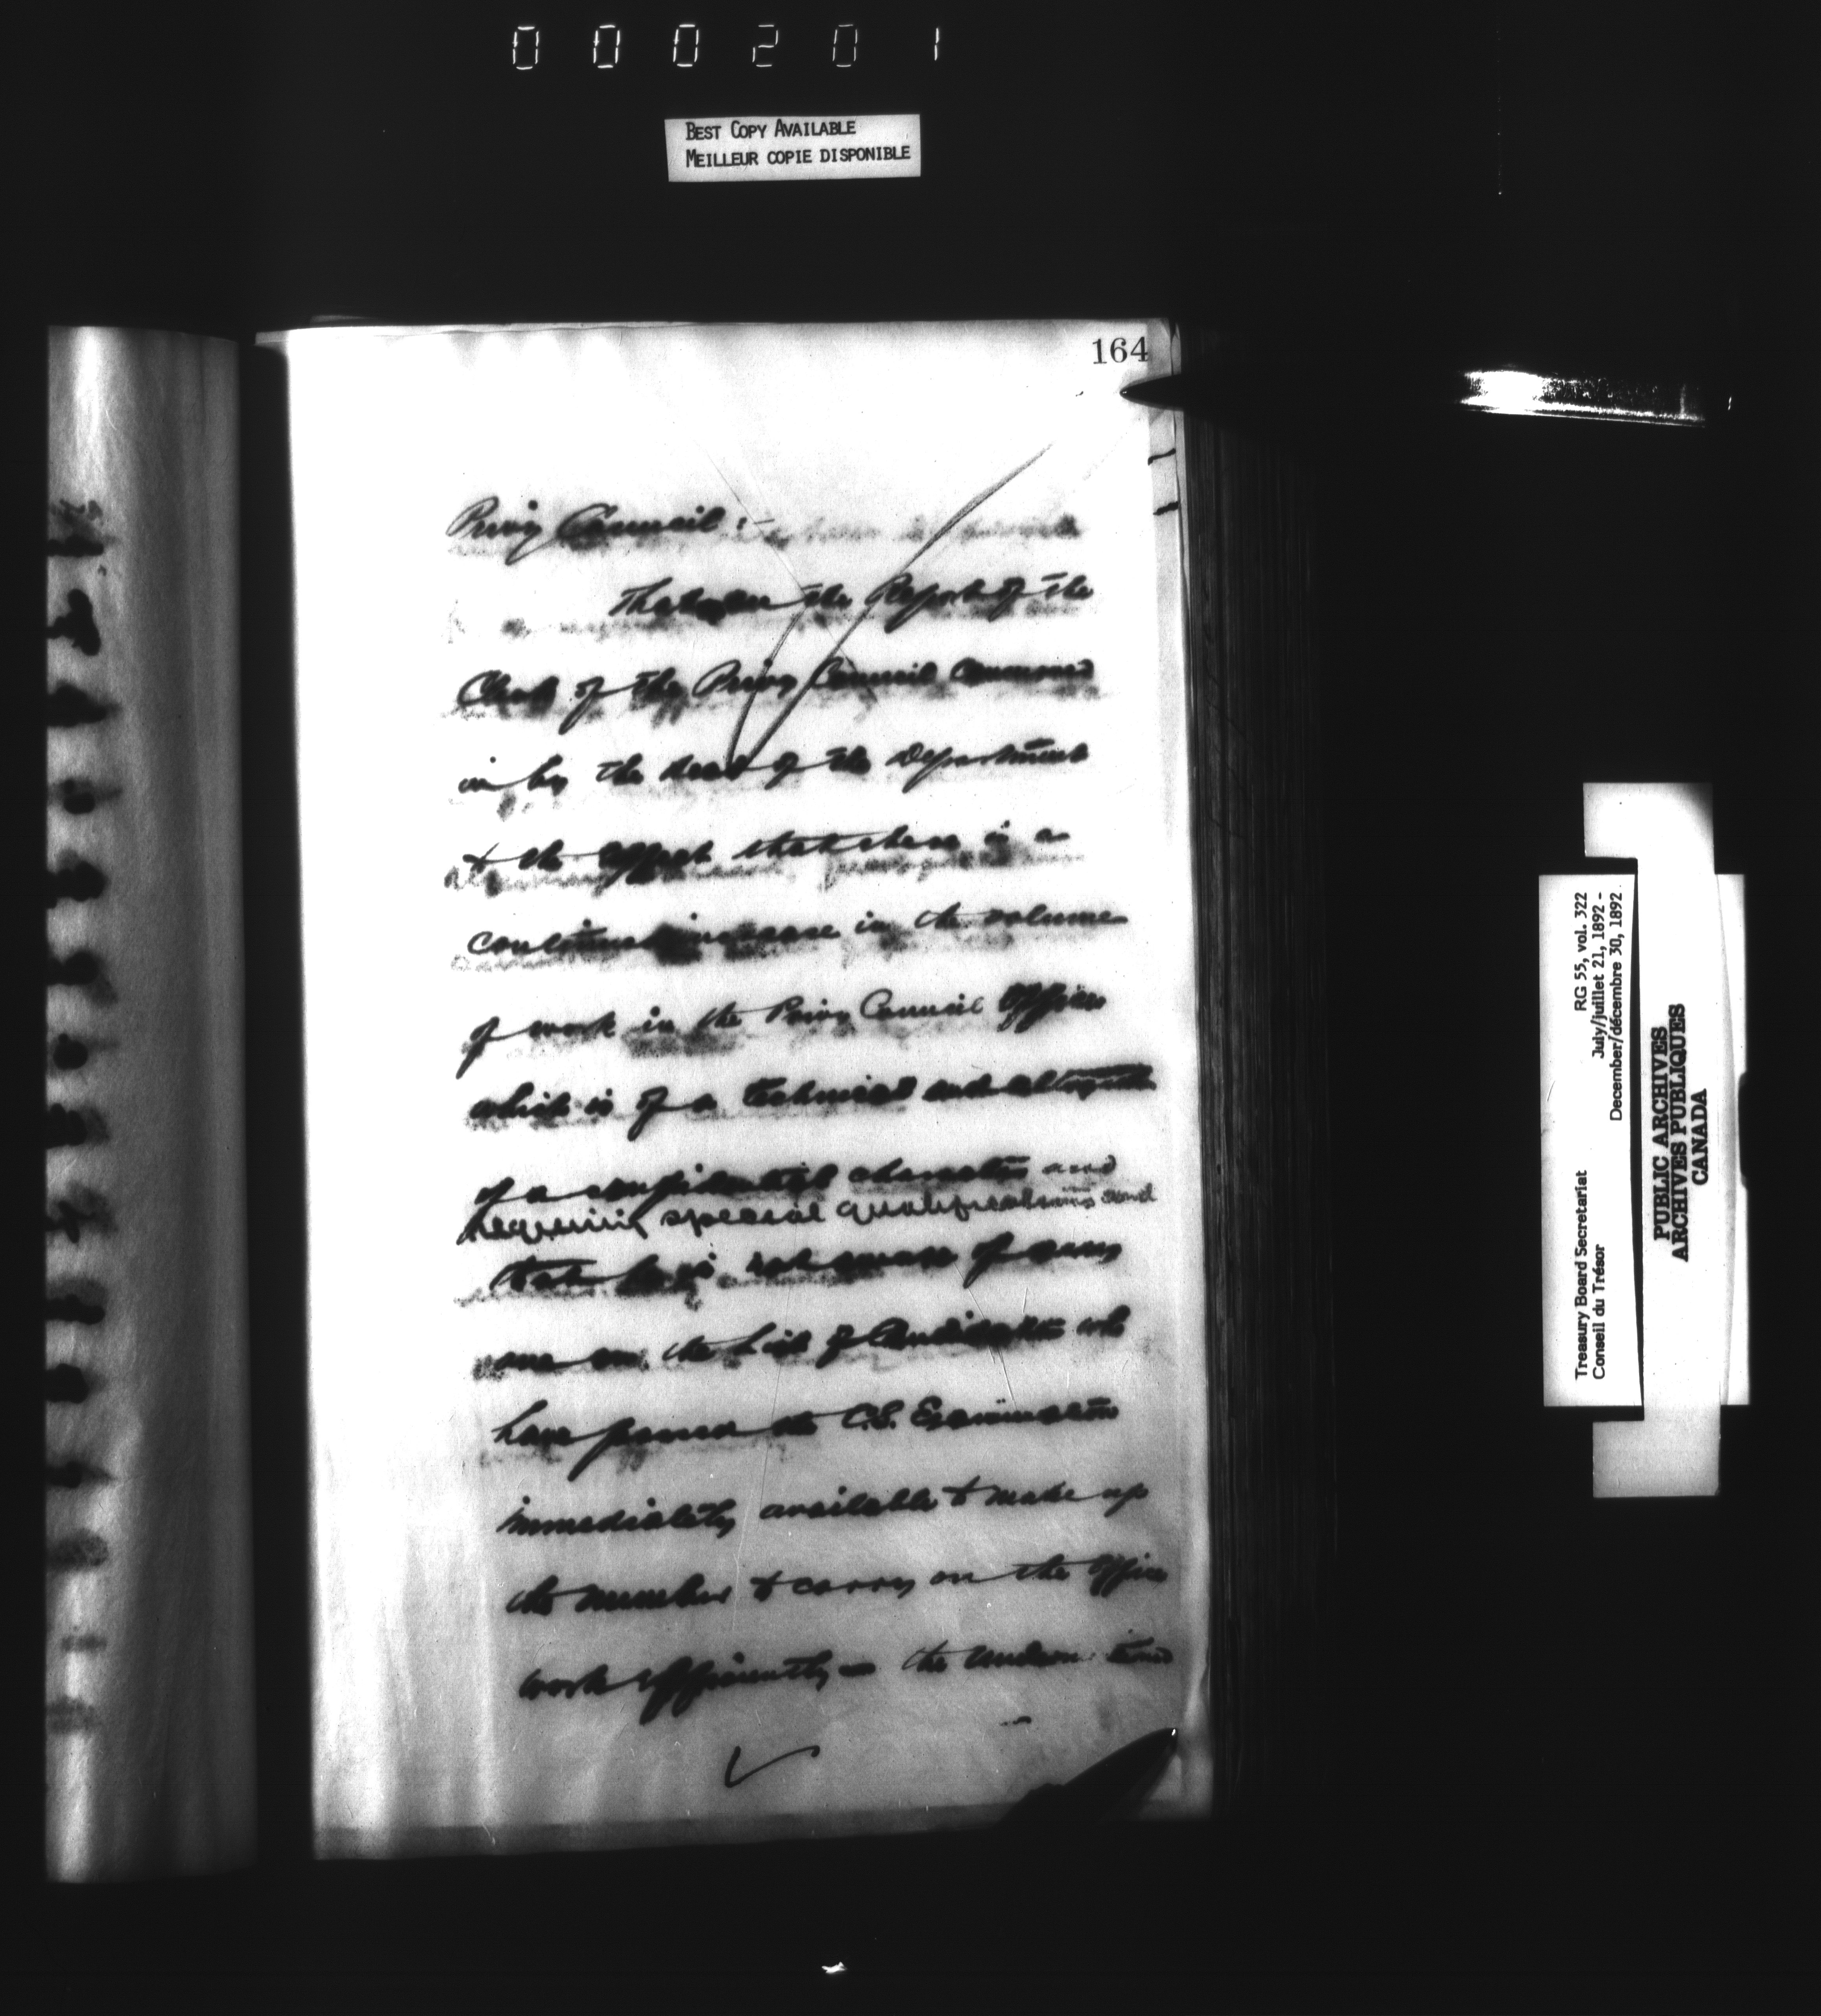 000201
BEST COPY AVAILABLE
MEILLEUR COPIE DISPONIBLE
164
Privy Council :-
That on the Report of the
Clerk of the Privy Council concurred
in by the Head of the Department
to the effect that there is a
continued increase in the volume
of work in the Privy Council Office
which is of a technical and
of a confidential character and
requiring special qualifications and
that he is not aware of any
one on the List of Candidates who
have passed the C.S. Examination
immediately available to make up
the number to carry on the Office
work efficiently - the
RG 55, vol. 322
July/juillet 21, 1892 -
December/décembre 30, 1892
Treasury Board Secretariat
Conseil du Trésor
PUBLIC ARCHIVES
ARCHIVES PUBLIQUES
CANADA